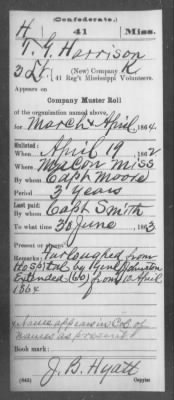 (Confederate.)
H 41 Miss.
T. G. Harrison
3 Lt., (New) Company K,
41 Reg't Mississippi Volunteers.
Appears on
Company Muster Roll
of the organization named above,
for March & April, 1864.
Enlisted:
When April 19, 1862
Where Macon Miss
By whom Capt Moore
Period 3 years
Last paid:
By whom Capt Smith
To what time 30 June, 1863.
Present or absent
Remarks: Furloughed from
Hospital by Genl Johnston
Extended from 10 April
1864
Name appears in Col. of
names as present
Book mark:
J. B. Hyatt
(642) Copyist.